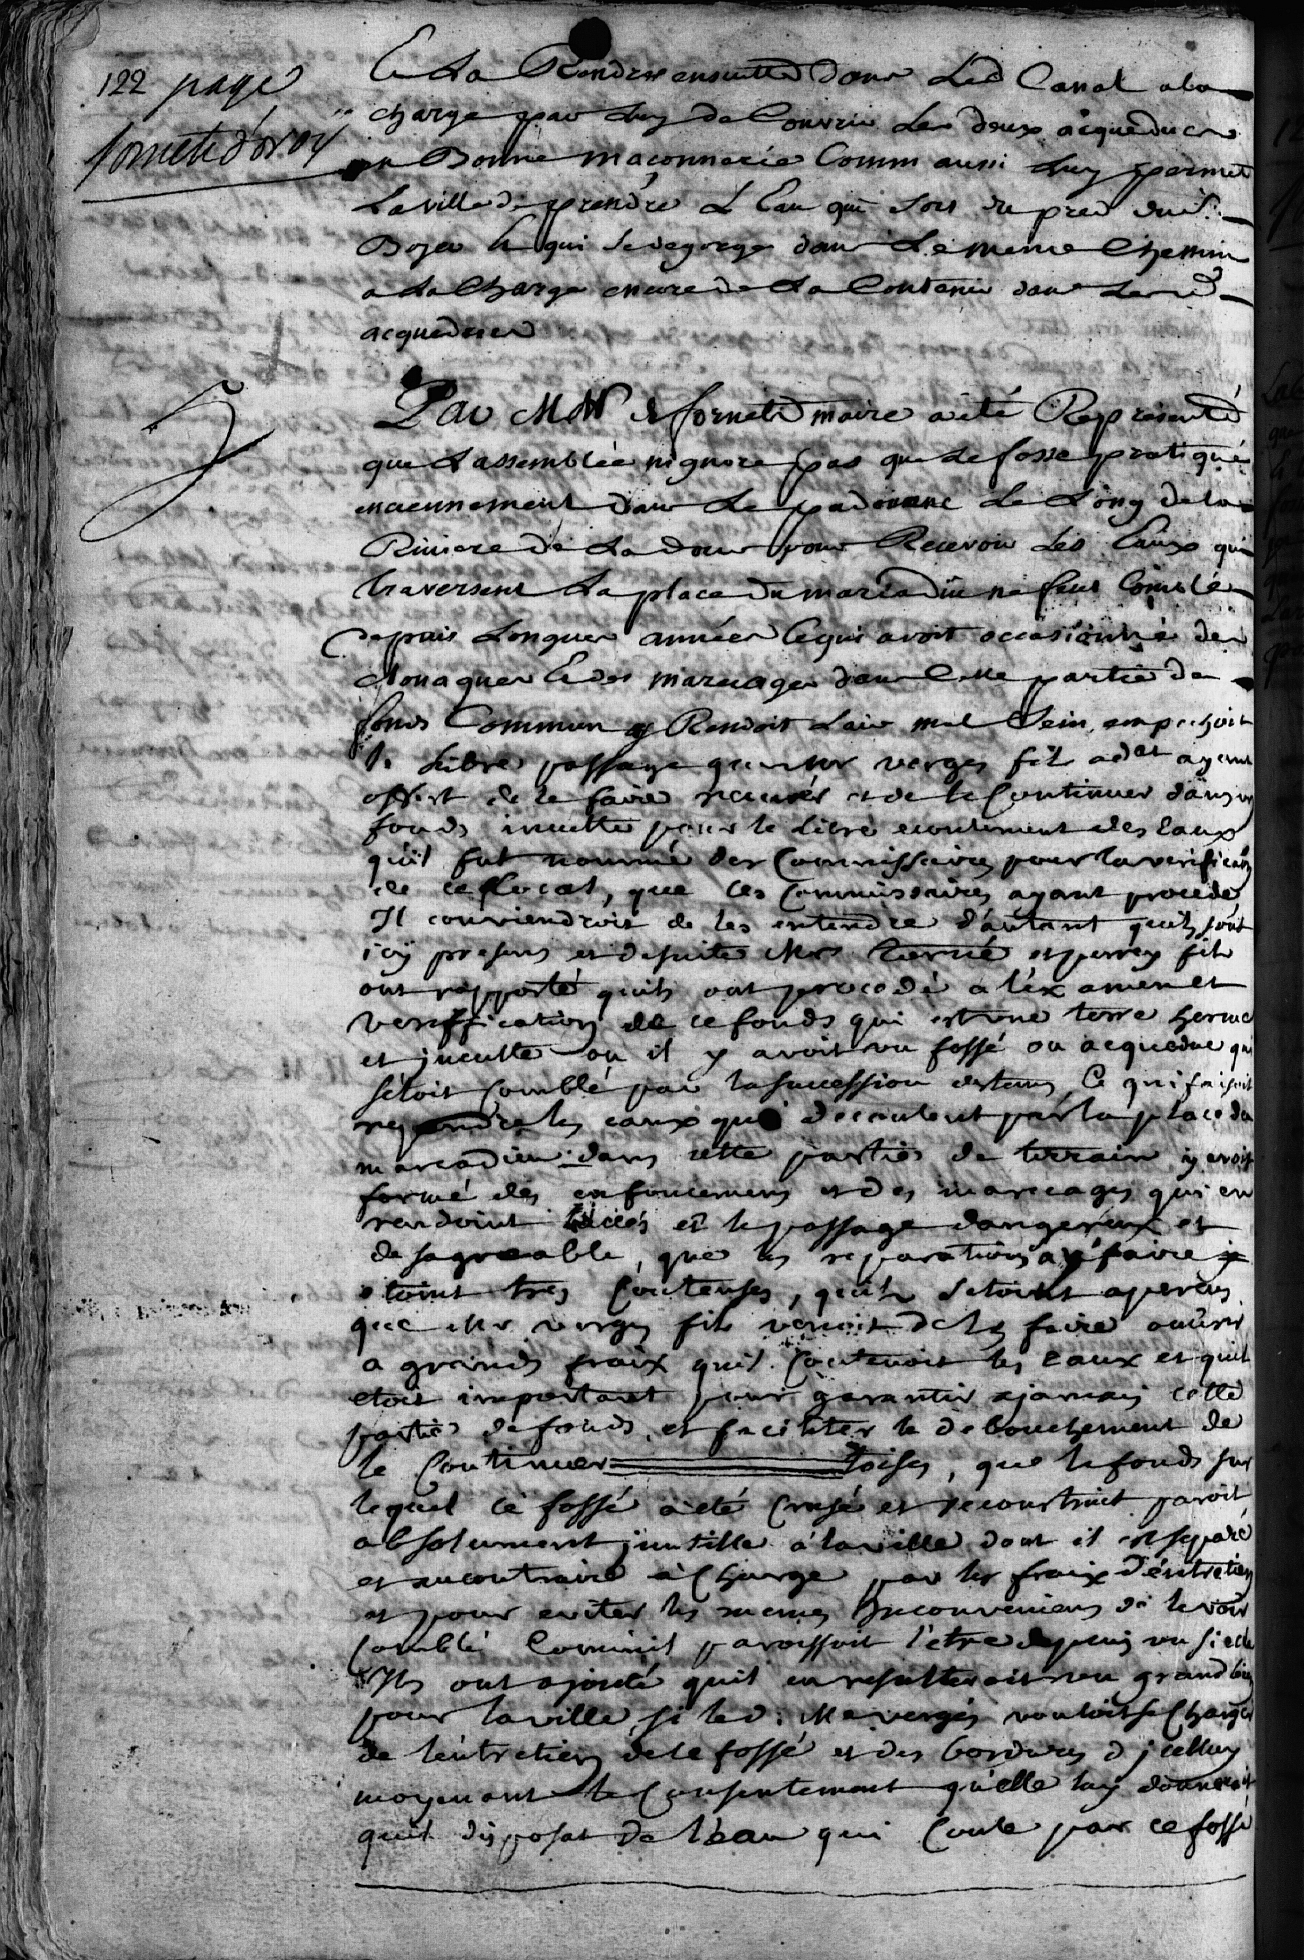 122 page
forneté d'oroy
Et La Rendre ensuitte dans Led Canal ala
charge par Luy de Couvrir Les deux acqueducs
en Bonne maçonnerie Comm aussi Luy permet
La ville de prendre L Eau qui sort du pred dud.
Et qui se degorge dans Le meme Chemin
a La Charge encore de La Contenir dans Led
acqueducs
Par M de fornets maire a été Représenté
que Lassemblée nignore pas que Le fossé pratiqué
enciennement dans Le padouenc Le Long de la
Riviere de Ladour pour Recevoir Les Eaux qui
traversent La place du marcadiu ne feut Comblé
depuis Longues années Cequi avoit occasionné des
Cloaques Et des marecages dans Cette partie de
fonds Commun Rendoit Lair mal Sein empechoit
le Libre passage que Mr verges fils adat ayant
offert de le faire recurer et de le Continuer dans ce
fonds inculte pour le Libre ecoulement des Eaux
quil fut nommé des Commissaires pour la veriffication
de ce Local, que les Commissaires ayant procedé
Il conviendroit de les entendre d'autant quils sont
icy presens et desuite Mrs et fils
ont rapporté quils ont procedé a léxamen et
veriffication de ce fonds qui est une terre herme
et jnculte ou il y avoit un fossé ou acqueduc qui
sétoit Comblé par la succession des tems Ce qui faisoit
repandre les eaux qui decoulent par la place du
marcadieu dans cette partie de terrain y avoit
formé des enfoncemens et des marecages qui en
rendoint laccés et le passage dangereux et
desagreable, que les reparations a y faire
etoint tres Couteuses, quils setoint aperçus
que Mr verges fils venoit de les faire ouvrir
a grands fraix quil Contenoit les Eaux et quil
etoit important pour garantir ajamais cette
partie de fonds, et faciliter le debouchement de
le Continuer toises, que le fonds sur
lequel ce fossé a été Crusé et reconstruit paroit
absolument jnutille à la ville dont il est separé
et aucontraire à Charge par les fraix d'entretien
et pour eviter les memes Jnconveniens de le voir
Comblé Comme il paroissoit l'etre depuis un siecle
Ils ont ajouté quil en resulteroit un grand bien
pour la ville, si led. Mr verges vouloit se Charger
de léntretien de ce fossé et des bordures d jcelluy
moyenant le Consentement qu'elle luy donneroit
quil disposat de l'eau qui Coule par ce fossé